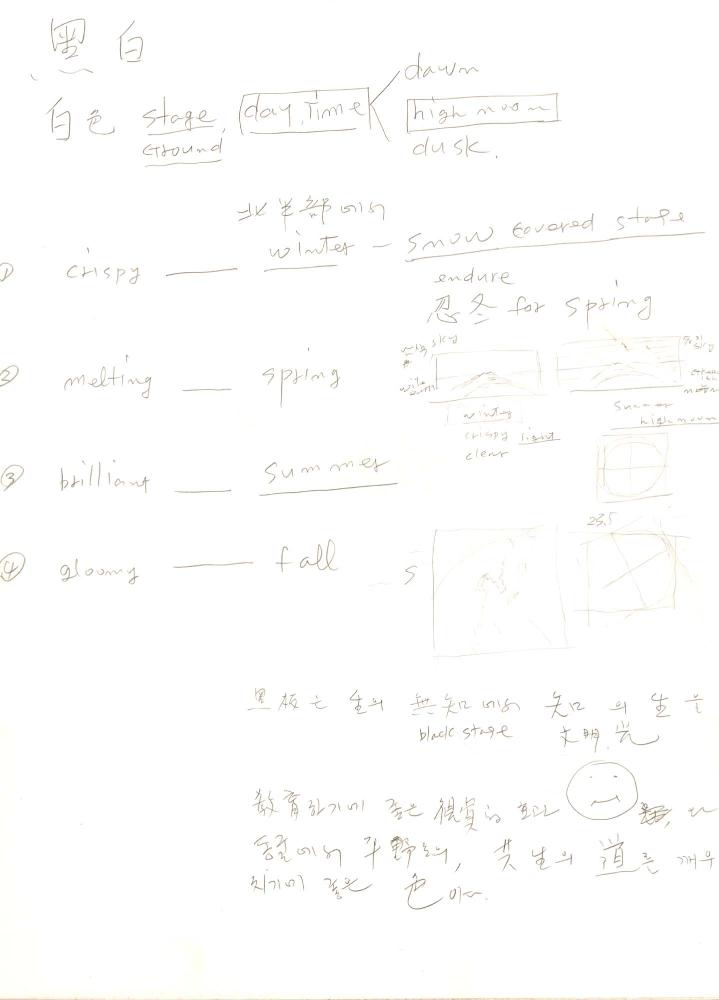 黑 白
dawn
白色 stage, day, Time high noon
Ground dusk.
北半部에서
① crispy — winter — snow covered stage
endure
忍冬 for spring
sky
② melting — spring
winter
crispy light
clear
Summer
high noon
③ brilliant — Summer
23.5
④ gloomy — fall
S
黑板는 生의 無知에서 知의 生은
black stage 文明, 光
教育하기에 좋은 視覚的 효과
동굴에서 平野로의, 共生의 道를 깨우
치기에 좋은 色이다.